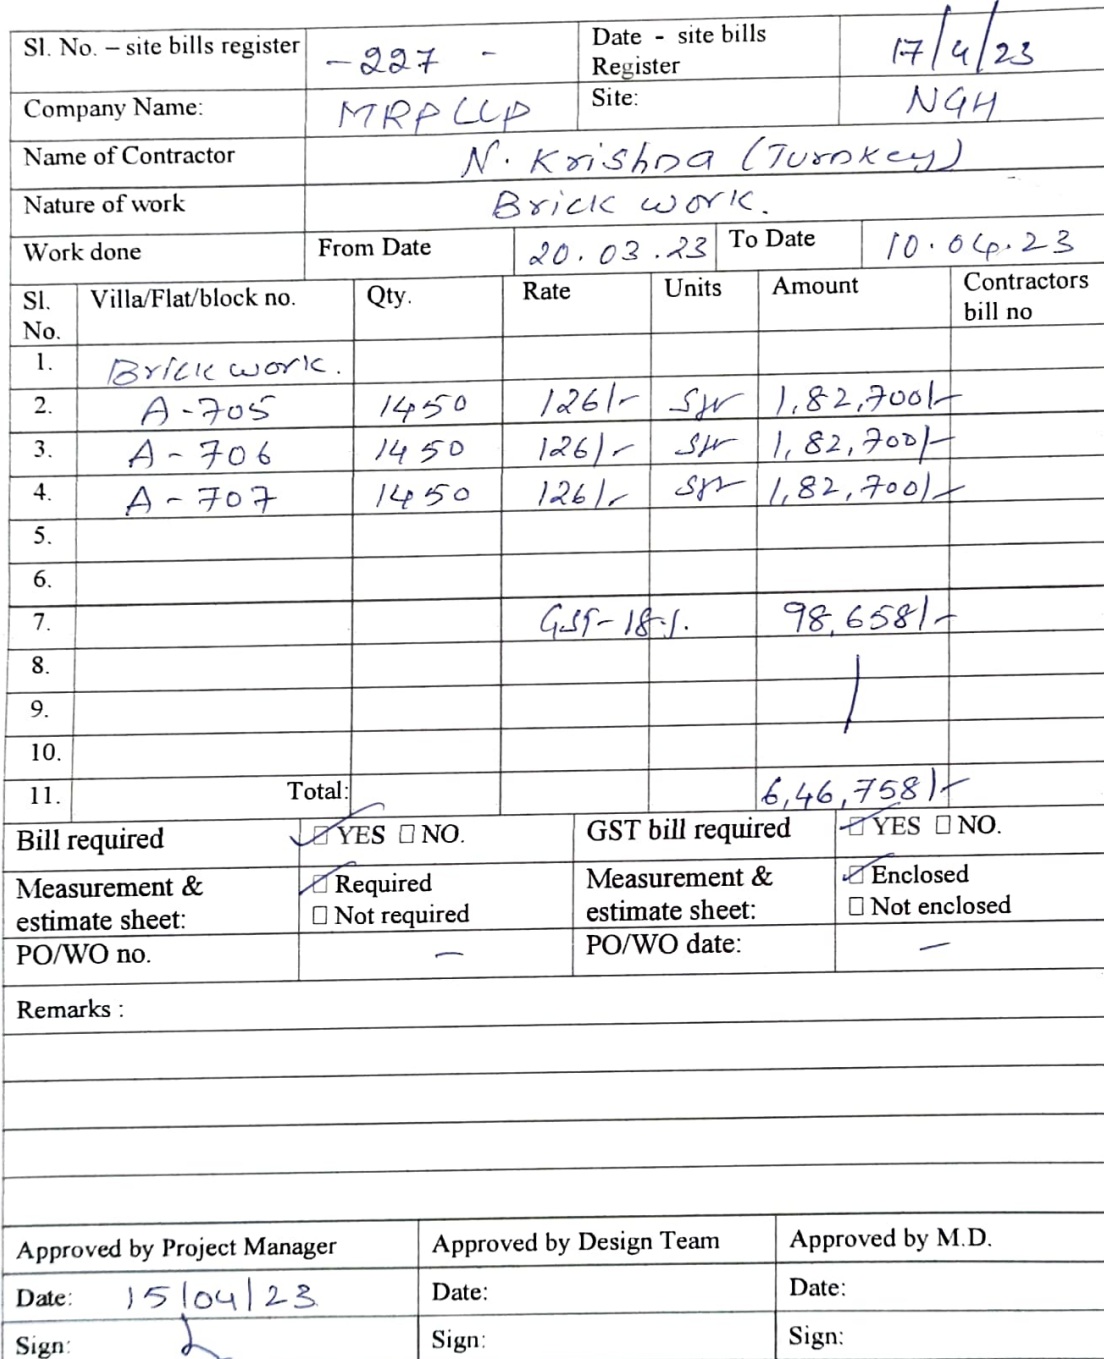 Sl. No. – site bills register -227 - Date - site bills Register 17/4/23
Company Name: MRP LLP Site: NGH
Name of Contractor N. Krishna (Turnkey)
Nature of work Brick work.
Work done From Date 20.03.23 To Date 10.04.23
Sl. No. Villa/Flat/block no. Qty. Rate Units Amount Contractors bill no
1. Brick work.
2. A-705 1450 126/- 1,82,700/-
3. A-706 1450 126/- 1,82,700/-
4. A-707 1450 126/- 1,82,700/-
5.
6.
7. GST-18%. 98,658/-
8.
9.
10.
11. Total: 6,46,758/-
Bill required ☑ YES ☐ NO. GST bill required ☑ YES ☐ NO.
Measurement & estimate sheet: ☑ Required ☐ Not required Measurement & estimate sheet: ☑ Enclosed ☐ Not enclosed
PO/WO no. — PO/WO date: —
Remarks :
Approved by Project Manager Approved by Design Team Approved by M.D.
Date: 15/04/23 Date: Date:
Sign: Sign: Sign: